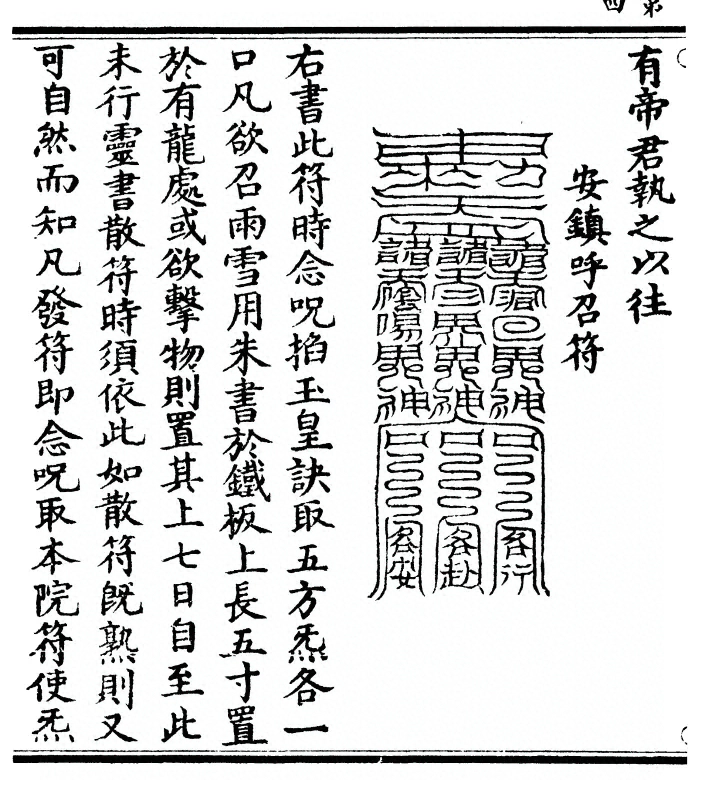 有帝君執之以往
安鎮呼召符
諸天鬼神各行
諸天三界鬼神各赴
諸天陰陽鬼神各安
右書此符時念呪掐玉皇訣取五方炁各一
口凡欲召雨雪用朱書於鐵板上長五寸置
於有龍處或欲擊物則置其上七日自至此
未行靈書散符時須依此如散符既熟則又
可自然而知凡發符即念呪取本院符使炁